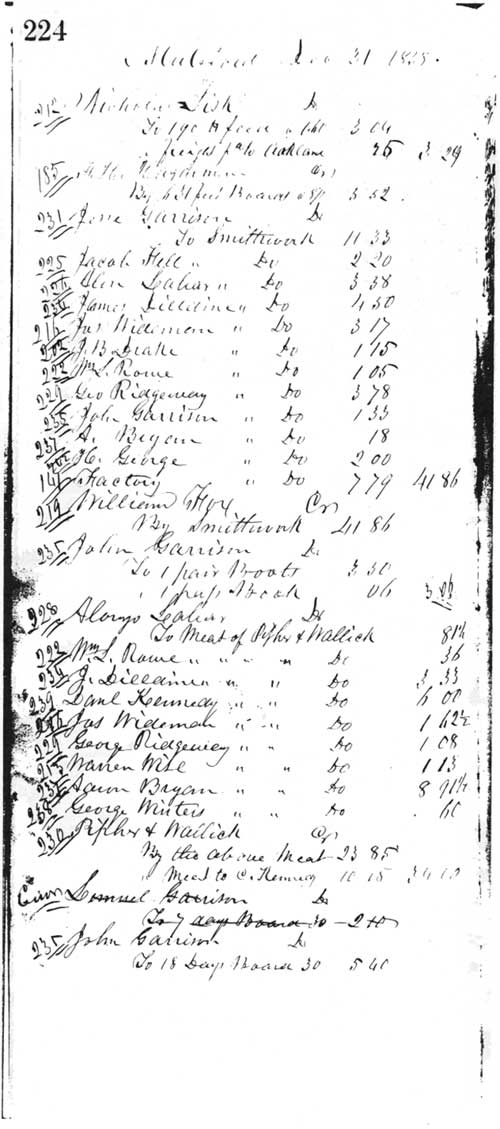 224
Dec 31 1838.
212 Nicholas Fish Dr
To 190 ft 3 04
freight to Oakland 25 3 29
185 Cr
By 631 feet Boards 3 52
231 Jesse Garrison Dr
To Smithwork 11 33
225 Jacob Hell " Do 2 20
" Do 3 38
236 James Dilldine " Do 4 30
Jas Wideman " Do 3 17
202 J. B Drake " Do 1 15
222 Wm L. Rowe " Do 1 05
229 Geo Ridgeway " Do 3 78
235 John Garrison " Do 1 33
237 A. Bryan " Do 18
H. George " Do 2 00
Factory " Do 7 79 41 86
219 William Fox Cr
By Smithwork 41 86
235 John Garrison Dr
To 1 pair Boots 3 50
" 1 Book 06
228 Alonzo Dr
To Meat of Pifher & Wallick 81½
222 Wm L. Rowe " " " " Do 36
236 J. Dilldine " " " Do 3 33
239 Danl Kennedy " " " Do 6 00
Jas Wideman " " Do 1 62½
229 George Ridgeway " " Do 1 08
215 Warren Wise " " Do 1 13
237 Aaron Bryan " " Do 8 91½
238 George Winters " " Do 60
230 Pifher & Wallick Cr
By the above Meat 23 85
" Meat to C. Kennedy 10 15
Error Lemuel Garrison Dr
To 7 days Board 30 - 2 10
235 John Garrison Dr
To 18 Days Board 30 5 40